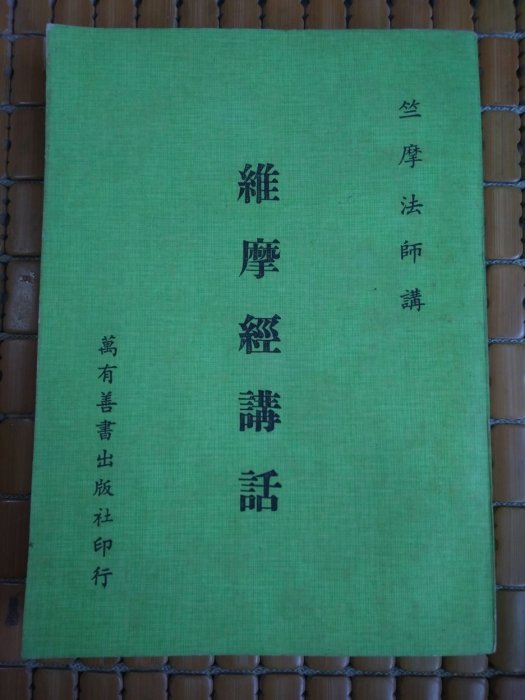 竺摩法師講
維摩經講話
萬有善書出版社印行